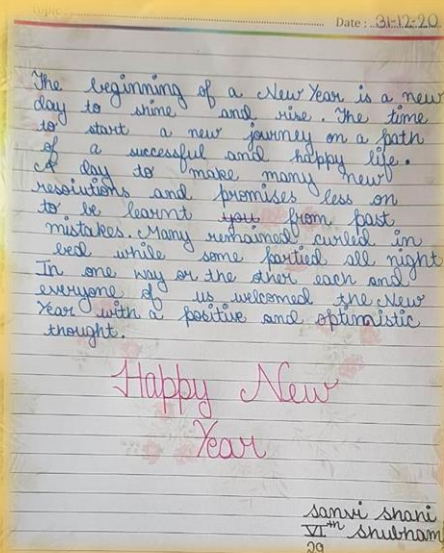 Topic
Date : 31-12-20
The beginning of a New Year is a new
day to shine and rise. The time
to start a new journey on a path
of a successful and happy life.
A day to make many new
resolutions and promises less on
to be learnt you from past
mistakes. Many remained curled in
bed while some partied all night
In one way or the other each and
everyone of us welcomed the New
Year with a positive and optimistic
thought.
Happy New
Year
sanvi shani
VIth shubham
29